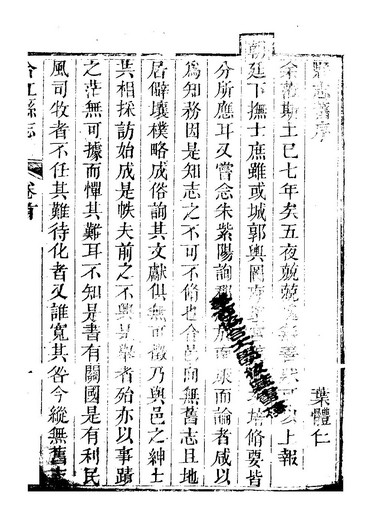 志舊序
葉體仁
余蒞斯土已七年矣五夜兢兢無善狀可以上報
朝廷下撫士庶雖或城郭輿培脩要皆
分所應耳又嘗念朱紫陽詢郡求而論者咸以
為知務因是知志之不可不脩也合邑向無舊志且地
居僻壤樸略成俗詢其文獻俱無可徵乃與邑之紳士
共相採訪始成是帙夫前之不興是舉者殆亦以事蹟
之茫無可據而憚其難耳不知是書有關國是有利民
風司牧者不任其難待化者又誰寬其咎今縱無舊志
合江縣志
卷首
一